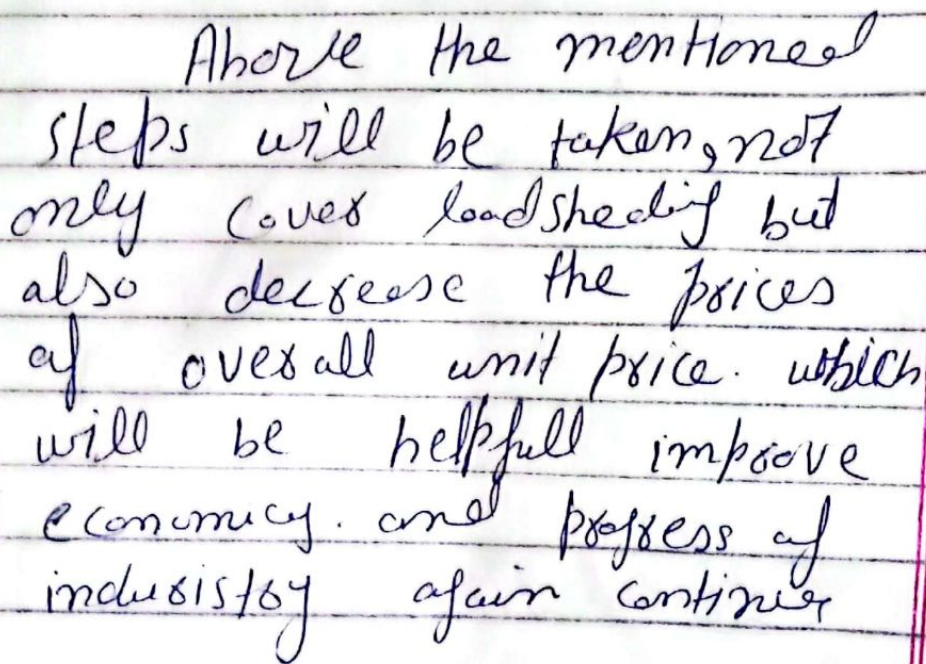 Above the mentioned
steps will be taken, not
only cover loadsheding but
also decrease the prices
of overall unit price. which
will be helpfull improve
economicy. and progress of
indusistry again continue